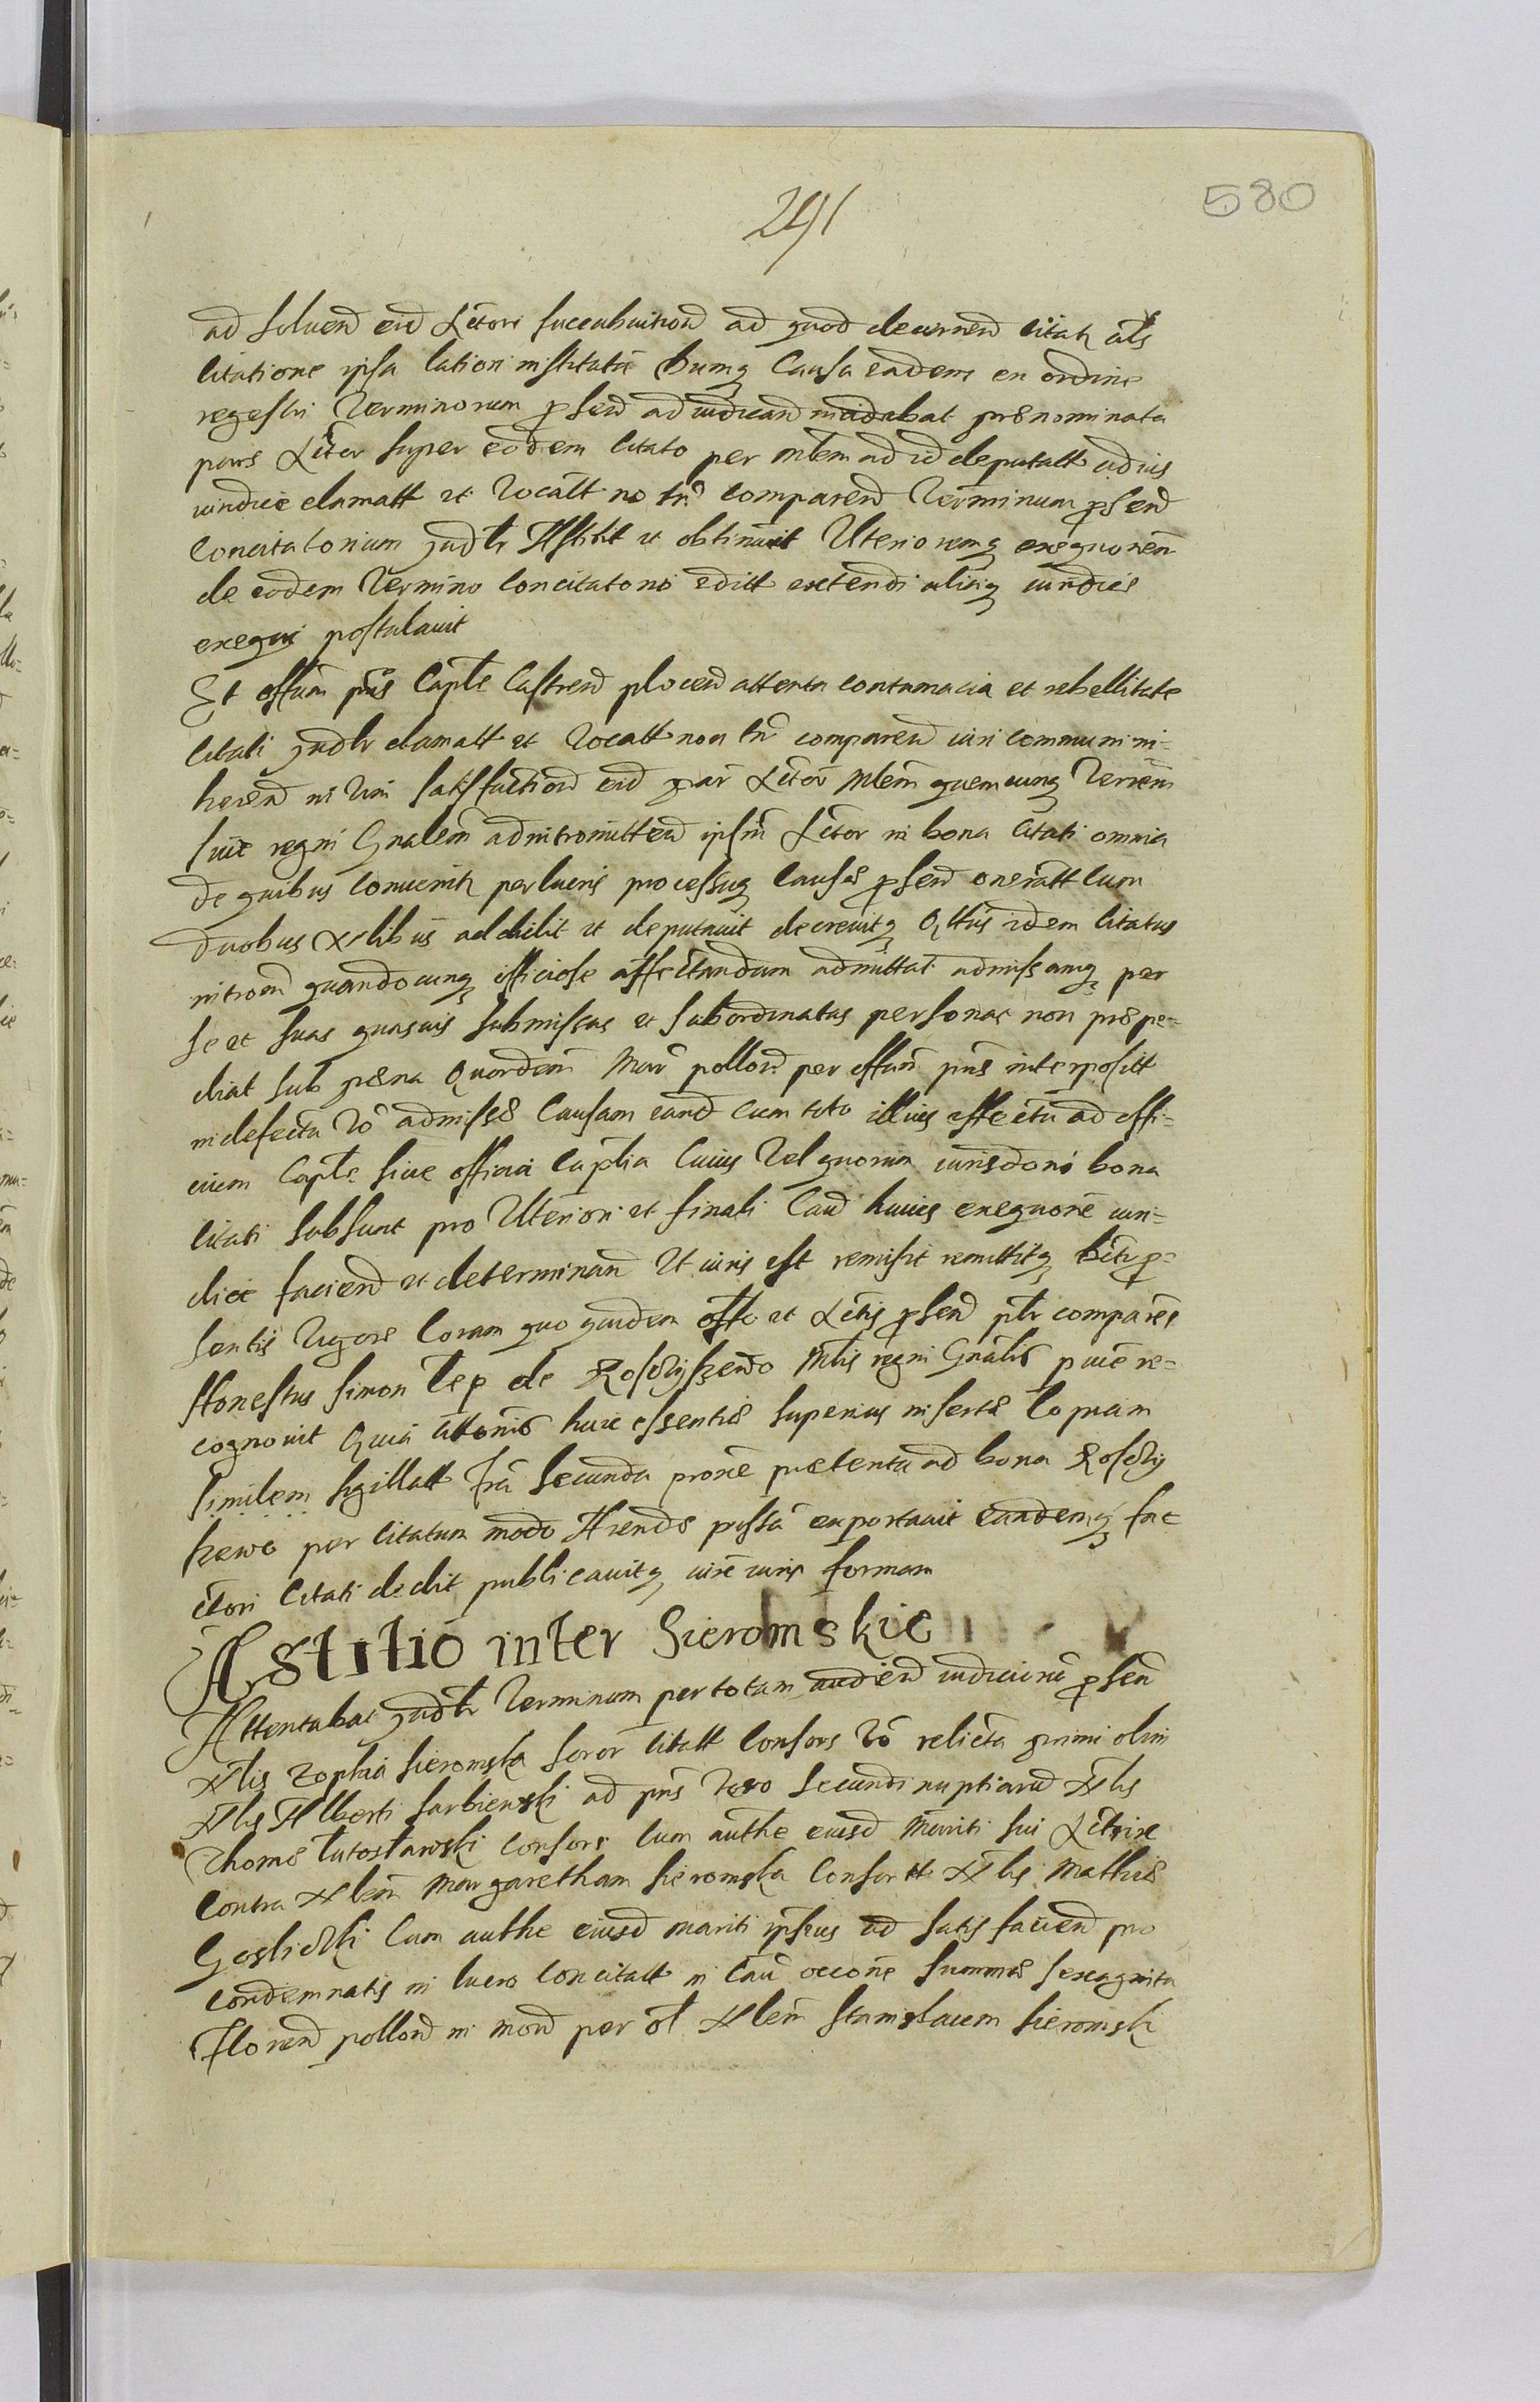 291
580
ad soluend eid Actori succubuitiond ad quod decernend citatr als
citatione ipsa latiori institutu Cumq Causa eadem ex ordine
regestri Terminorum p send ad iudicand incidebat prænominata
pars Actor super eodem citato per mlem ad id deputatt ad ius
iuridice clamatt et vocatt no tn comparend Terminum p send
Concitatorium gudtr Astitit et obtinuit Ulterioremq exequonem
de eodem Termino Concitatorio edict extendi aliaq iuridice
exequi postulauit
Et offium pns Captle Castrend plocend attenta contumacia et rebellitate
Citati gudtr clamatt et vocatt non tn comparend iuri communi in=
herend in vim satisfactiond eid par Actor mlem quemcunq Terrem
siue regni Gnalem ad intromittend ipsm Actor in bona Citati omnia
de quibus Conuenitr per lucris processuq causæ p send oneratt Cum
duobus Nlibus addidit et deputauit decreuitq Qttus idem Citatus
introm quandocunq officiose affectandam admittat admissamq per
se et suas quasuis submissas et subordinatas personas non præpe=
diat sub pæna Quordecim Mar pollond per offum pns interposit
in defectu vo admissæ Causam eand cum toto illius effectu ad offi=
cium Captle siue officia Captlia Cuius vel quorum iurisdoni bona
Citati subsunt pro Ulteriori et finali Caud huius exequone iuri=
dice faciend et determinand Ut iuris est remisit remittitq Dcti p=
sentis vigore Coram quo quidem offo et Actis p send ptr comparēs
Honestus Simon Cep de Rosdzyszewo Mlis regni Gnalis publice re=
cognouit Quia littoris huic essentiæ superius insertæ Copiam
similem sigillatt fria secunda proxie præterita ad bona Rosdzy
szewo per Citatum modo Arendæ possa exportauit eandemq fac
tori Citati dedit publicauitq iuxe iuris formam
Astitio inter Sieromskie
Attentabat gudtr Terminum per totam audiend iudiciarii p send
Nlis Zophia Sieromska soror Citatt Consors vo relicta primi olim
Nlis Alberti Sarbiewski ad pns vero secundi nuptiarud Nlis
Thomæ Lutostawski Consors Cum authe eiusd mariti sui Actrix
Contra Nlem Margaretham Sieromska Consortt Nlis Mathiæ
Goslicki Cum authe eiusd mariti ipsius ad satis faciend pro
Condemnatis in lucro Concitatt in Cau occone summæ sexaginta
Florend pollond in mond per ol Nlem Stanislaum Sieromski